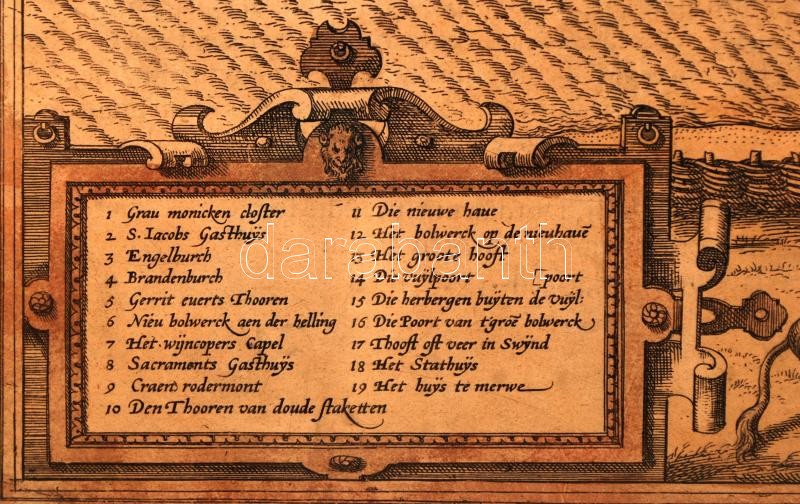 1 Grau monicken closter
2 S. Iacobs Gasthuÿs
3 Engelburch
4 Brandenburch
5 Gerrit euerts Thooren
6 Nieu bolwerck aen der helling
7 Het wijncopers Capel
8 Sacraments Gasthuÿs
9 Craen rodermont
10 Den Thooren van doude staketten
11 Die nieuwe haue
12 Het bolwerck op de nieuhauē
13 Het groete hooft
14 Die vuÿlpoort
poort
15 Die herbergen buÿten de vuÿl:
16 Die Poort van t'groē bolwerck
17 Thooft oft veer in Swÿnd
18 Het Stathuÿs
19 Het huÿs te merwe
darabanth